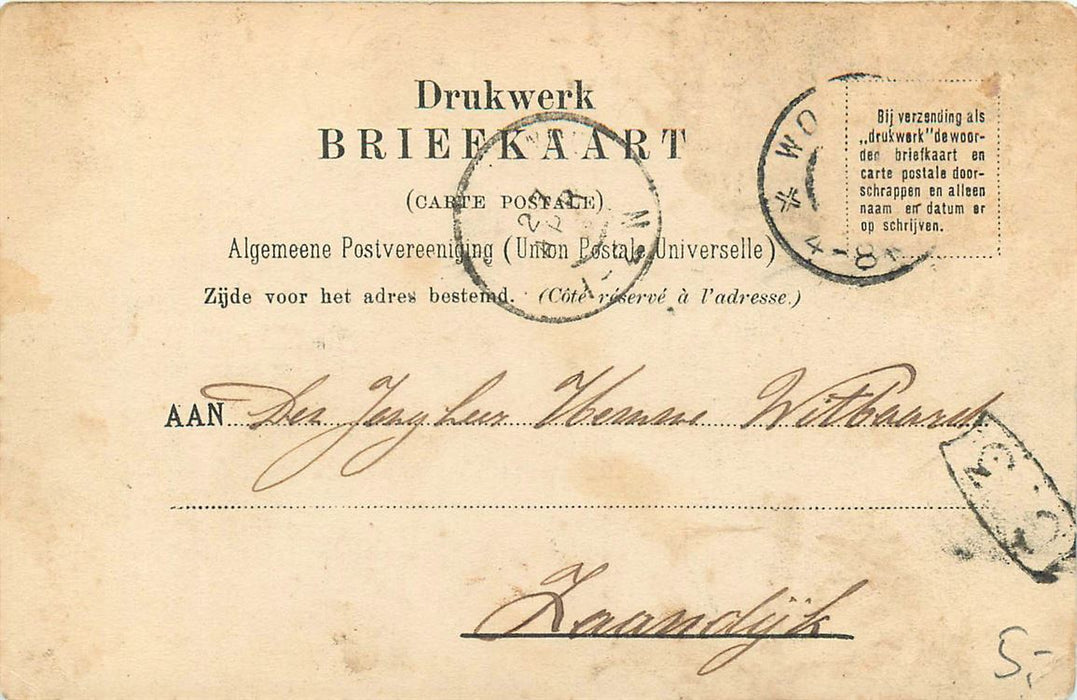 Drukwerk
BRIEFKAART
(CARTE POSTALE)
Algemeene Postvereeniging (Union Postale Universelle)
Zijde voor het adres bestemd. (Côté réservé à l'adresse.)
Bij verzending als
„drukwerk" de woor-
den briefkaart en
carte postale door-
schrappen en alleen
naam en datum er
op schrijven.
WO
4-8
AAN Den Jong heer Hemme Witbaard
Zaandijk
5,-